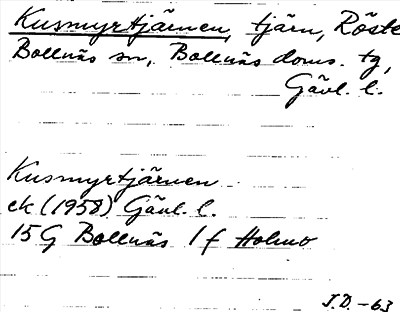 Kusmyrtjärnen, tjärn, Röste
Bollnäs sn, Bollnäs doms. tg,
Gävl. l.
Kusmyrtjärnen
ek (1958) Gävl. l.
15G Bollnäs 1 f Holmo
J.D. -63